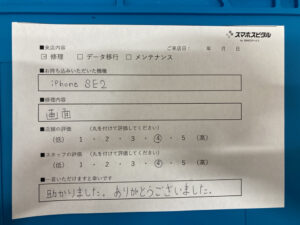 スマホスピタル
■来店内容
ご来店日: 年 月 日
☑ 修理 □ データ移行 □ メンテナンス
■お持ち込みいただいた機種
iPhone SE2
■修理内容
画面
■店舗の評価 (丸を付けて評価してください)
(低) 1 ・ 2 ・ 3 ・ ④ ・ 5 (高)
■スタッフの評価 (丸を付けて評価してください)
(低) 1 ・ 2 ・ 3 ・ ④ ・ 5 (高)
■一言いただけますと幸いです
助かりました。ありがとうございました。